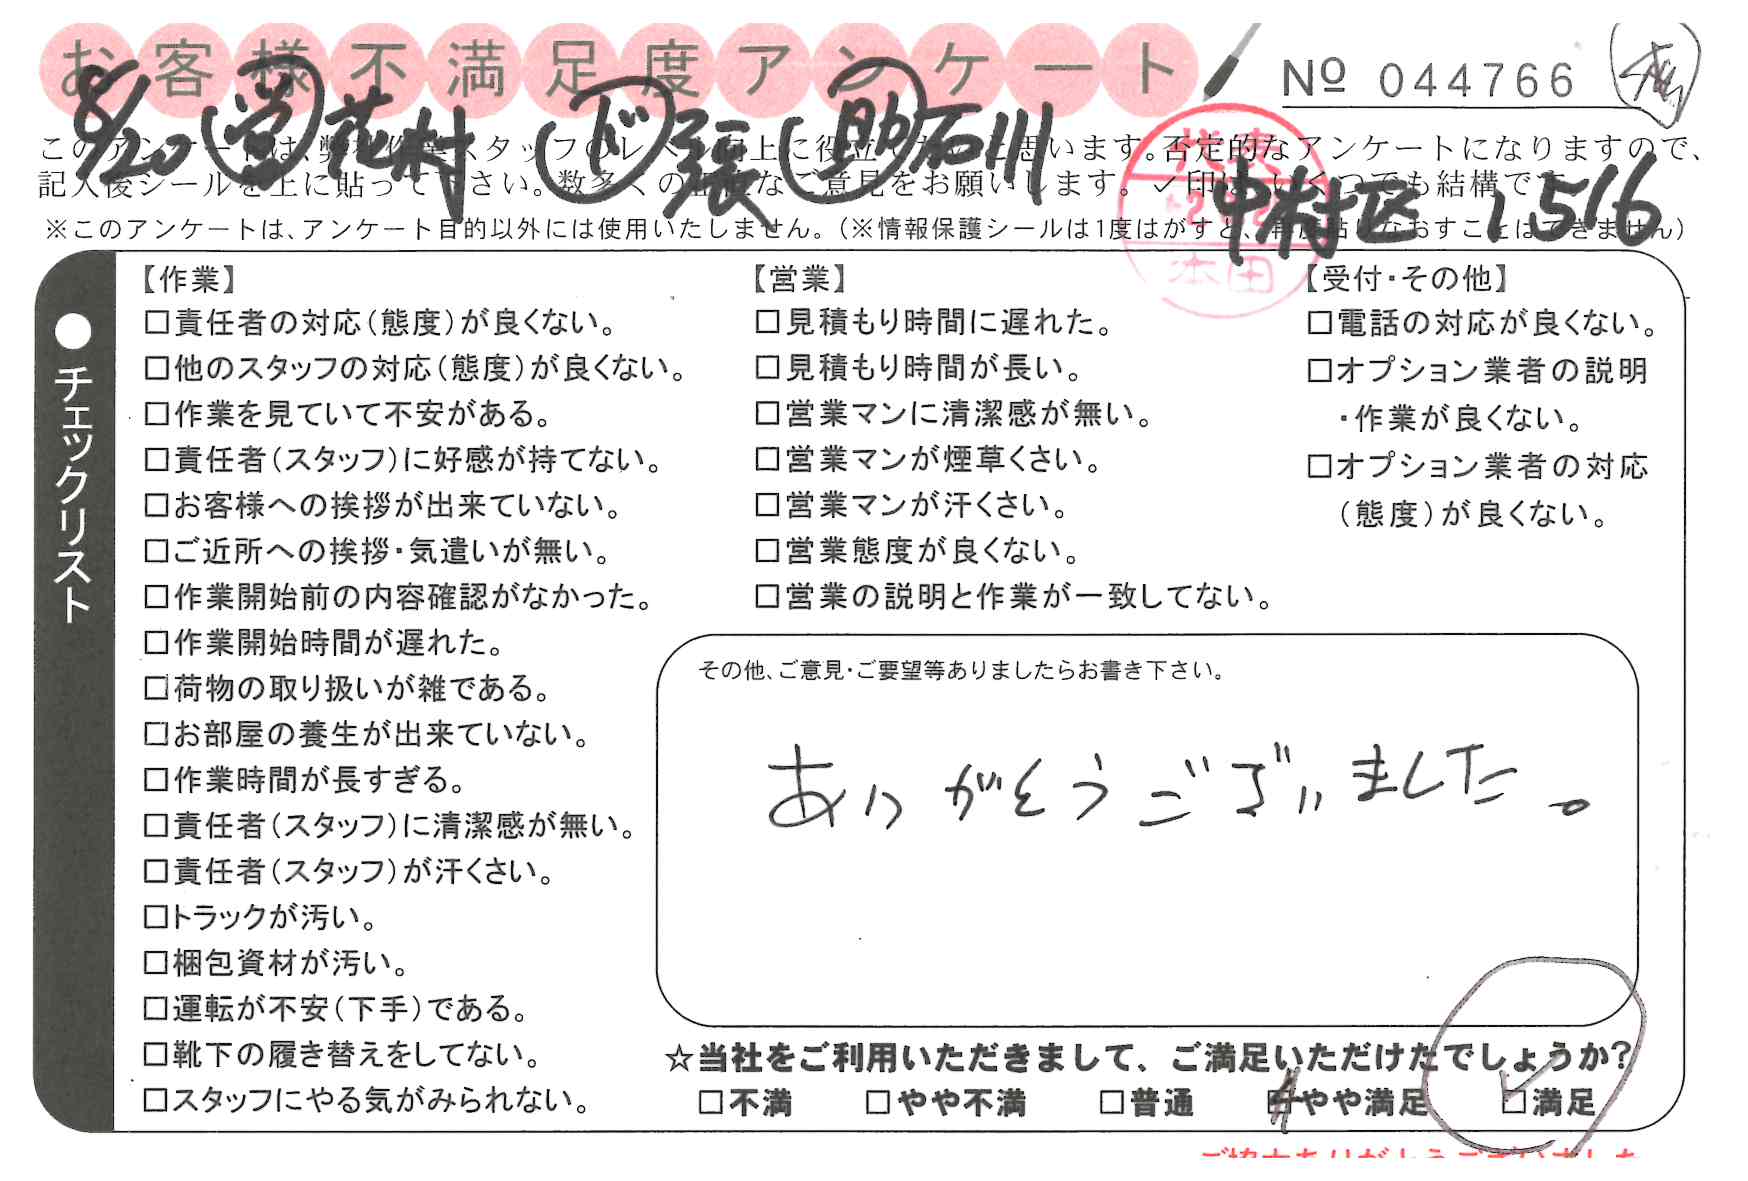 お客様不満足度アンケート
Nº 044766
8/20 営 花村 ド 張 助 石川
このアンケートは、弊社作業スタッフのレベル向上に役立てたいと思います。否定的なアンケートになりますので、
記入後シールを上に貼って下さい。数多くの正直なご意見をお願いします。✓印は、いくつでも結構です。
中村区 1516
※このアンケートは、アンケート目的以外には使用いたしません。(※情報保護シールは1度はがすと、再度貼りなおすことはできません)
本田
●チェックリスト
【作業】
□責任者の対応(態度)が良くない。
□他のスタッフの対応(態度)が良くない。
□作業を見ていて不安がある。
□責任者(スタッフ)に好感が持てない。
□お客様への挨拶が出来ていない。
□ご近所への挨拶・気遣いが無い。
□作業開始前の内容確認がなかった。
□作業開始時間が遅れた。
□荷物の取り扱いが雑である。
□お部屋の養生が出来ていない。
□作業時間が長すぎる。
□責任者(スタッフ)に清潔感が無い。
□責任者(スタッフ)が汗くさい。
□トラックが汚い。
□梱包資材が汚い。
□運転が不安(下手)である。
□靴下の履き替えをしてない。
□スタッフにやる気がみられない。
【営業】
□見積もり時間に遅れた。
□見積もり時間が長い。
□営業マンに清潔感が無い。
□営業マンが煙草くさい。
□営業マンが汗くさい。
□営業態度が良くない。
□営業の説明と作業が一致してない。
【受付・その他】
□電話の対応が良くない。
□オプション業者の説明
・作業が良くない。
□オプション業者の対応
(態度)が良くない。
その他、ご意見・ご要望等ありましたらお書き下さい。
ありがとうございました。
☆当社をご利用いただきまして、ご満足いただけたでしょうか?
□不満 □やや不満 □普通 □やや満足 ☑満足
ご協力ありがとうございました